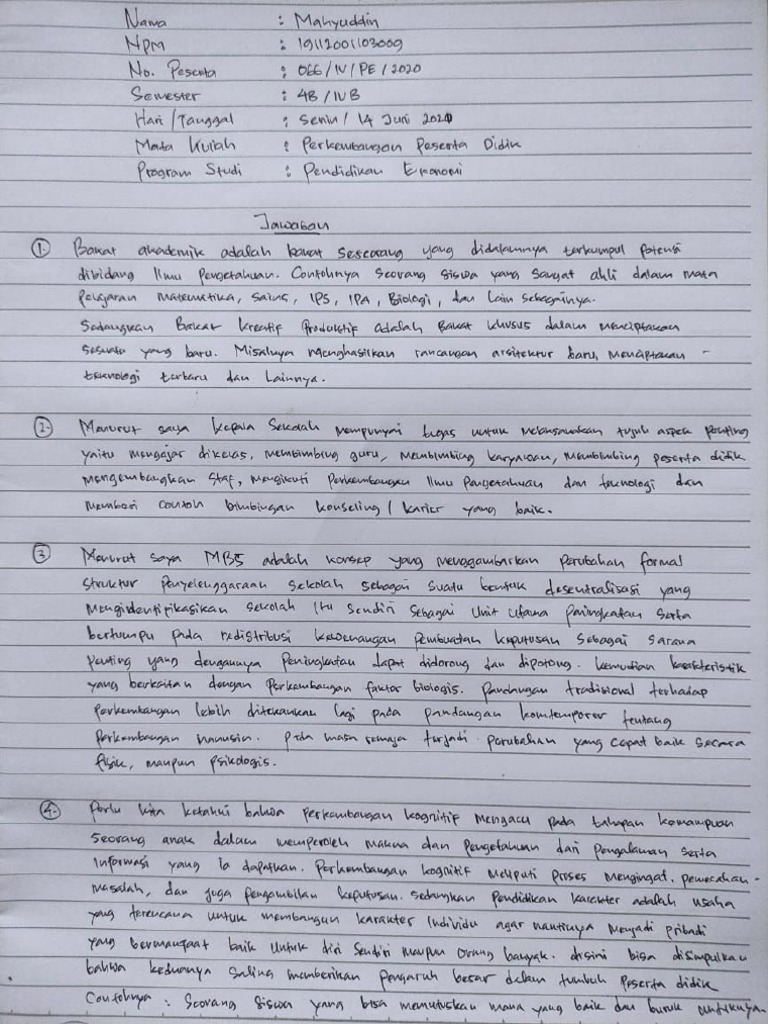 Nama : Mahyuddin
Npm : 19112001103009
No. Peserta : 066/IV/PE/2020
Semester : 4B/IVB
Hari/Tanggal : Senin/14 Juni 2021
Mata Kuliah : Perkembangan Peserta Didik
Program Studi : Pendidikan Ekonomi
Jawaban
1. Bakat akademik adalah bakat seseorang yang didalamnya terkumpul potensi
dibidang Ilmu Pengetahuan. Contohnya Seorang siswa yang sangat ahli dalam mata
Pelajaran matematika, Sains, IPS, IPA, Biologi, dan Lain sebagainya.
Sedangkan Bakat Kreatif Produktif adalah Bakat khusus dalam menciptakan
Sesuatu yang baru. Misalnya menghasilkan rancangan arsitektur baru, menciptakan -
teknologi terbaru dan Lainnya.
2. Menurut saya Kepala Sekolah mempunyai tugas untuk melaksanakan tujuh aspek penting
yaitu mengajar dikelas, membimbing guru, membimbing karyawan, membimbing peserta didik
mengembangkan Staf, mengikuti Perkembangan Ilmu Pengetahuan dan teknologi dan
memberi contoh bimbingan konseling/karier yang baik.
3 Menurut saya MBS adalah konsep yang menggambarkan perubahan formal
Struktur Penyelenggaraan sekolah sebagai suatu bentuk desentralisasi yang
Mengidentifikasikan sekolah Itu Sendiri Sebagai Unit utama Peningkatan Serta
bertumpu pada redistribusi kewenangan pembuatan keputusan Sebagai Sarana
Penting yang dengannya Peningkatan dapat didorong dan dipotong. kemudian karakteristik
yang berkaitan dengan Perkembangan faktor biologis. Pandangan tradisional terhadap
Perkembangan lebih ditekankan lagi pada pandangan komtemporer tentang
Perkembangan manusia. Pada masa remaja terjadi perubahan yang cepat baik secara
fisik, maupun psikologis.
4. Perlu kita ketahui bahwa perkembangan kognitif mengacu pada tahapan kemampuan
Seorang anak dalam memperoleh makna dan pengetahuan dari pengalaman serta
Informasi yang Ia dapatkan. Perkembangan kognitif meliputi proses mengingat, pemecahan -
masalah, dan juga pengambilan keputusan. Sedangkan Pendidikan karakter adalah usaha
yang terencana untuk membangun karakter Individu agar nantinya menjadi pribadi
yang bermanfaat baik untuk diri Sendiri maupun orang banyak. disini bisa disimpulkan
bahwa keduanya saling memberikan pengaruh besar dalam tumbuh Peserta didik
Contohnya : Seorang siswa yang bisa memutuskan mana yang baik dan buruk untuknya.